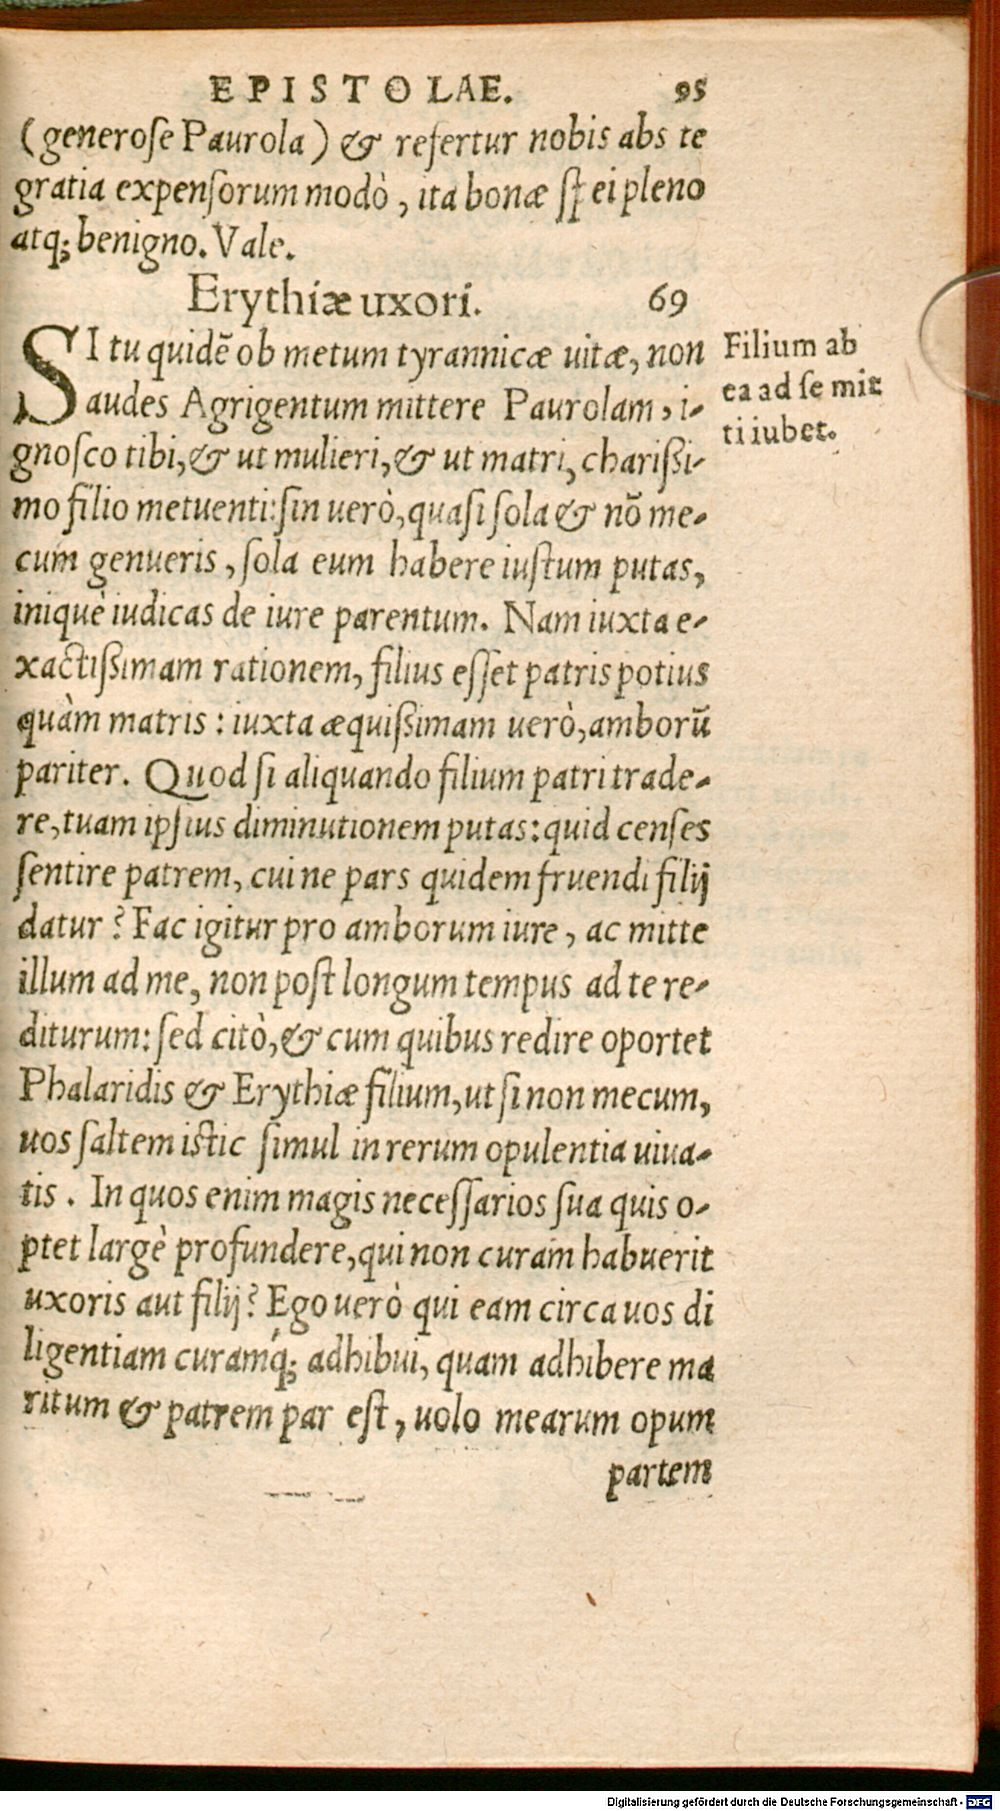 EPISTOLAE. 95
(generoſe Paurola) & refertur nobis abs te
gratia expenſorum modò, ita bonæ ſpei pleno
atq; benigno. Vale.
Erythiæ uxori. 69
SI tu quidē ob metum tyrannicæ uitæ, non
audes Agrigentum mittere Paurolam, i-
gnoſco tibi, & ut mulieri, & ut matri, chariſſi-
mo filio metuenti: ſin uerò, quaſi ſola & nō me-
cum genueris, ſola eum habere iuſtum putas,
iniquè iudicas de iure parentum. Nam iuxta e-
xactiſſimam rationem, filius eſſet patris potius
quàm matris: iuxta æquiſſimam uerò, amborū
pariter. Quod ſi aliquando filium patri trade-
re, tuam ipſius diminutionem putas: quid cenſes
ſentire patrem, cui ne pars quidem fruendi filij
datur? Fac igitur pro amborum iure, ac mitte
illum ad me, non poſt longum tempus ad te re-
diturum: ſed citò, & cum quibus redire oportet
Phalaridis & Erythiæ filium, ut ſi non mecum,
uos ſaltem iſtic ſimul in rerum opulentia uiua-
tis. In quos enim magis neceſſarios ſua quis o-
ptet largè profundere, qui non curam habuerit
uxoris aut filij? Ego uerò qui eam circa uos di
ligentiam curamq́; adhibui, quam adhibere ma
ritum & patrem par eſt, uolo mearum opum
partem
Filium ab
ea ad ſe mit
ti iubet.
Digitalisierung gefördert durch die Deutsche Forschungsgemeinschaft - DFG